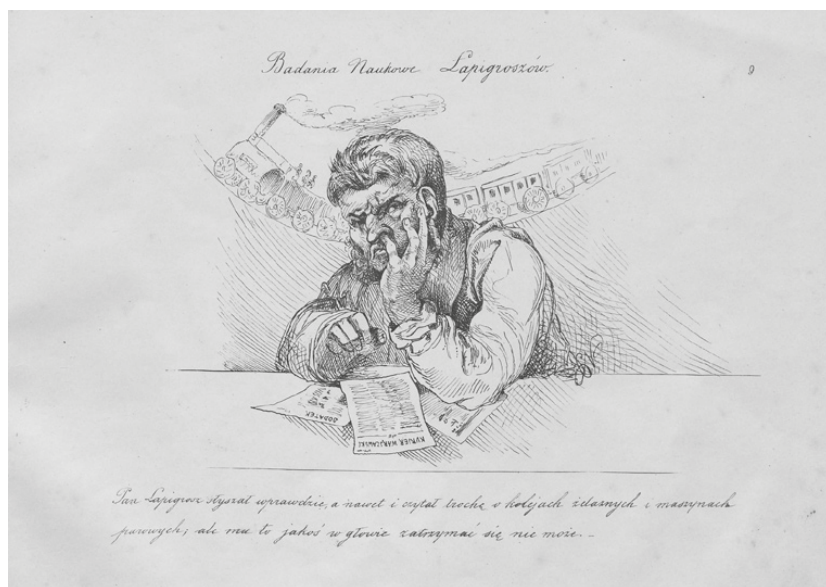 Badania Naukowe Łapigroszów.
9
DODATEK
KURJER WARSZAWSKI
Pan Łapigrosz słyszał wprawdzie, a nawet i czytał trochę o kolejach żelaznych i maszynach
parowych; ale mu to jakoś w głowie zatrzymać się nie może. _